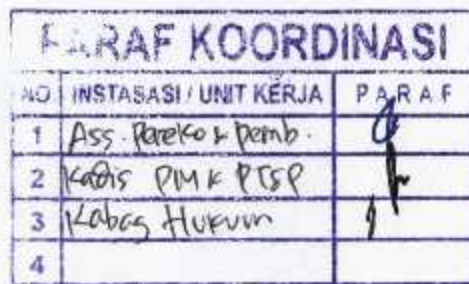 PARAF KOORDINASI
NO INSTASASI / UNIT KERJA PARAF
1 Ass. Pareko & Pemb.
2 Kadis PM & PTSP
3 Kabag Hukum
4